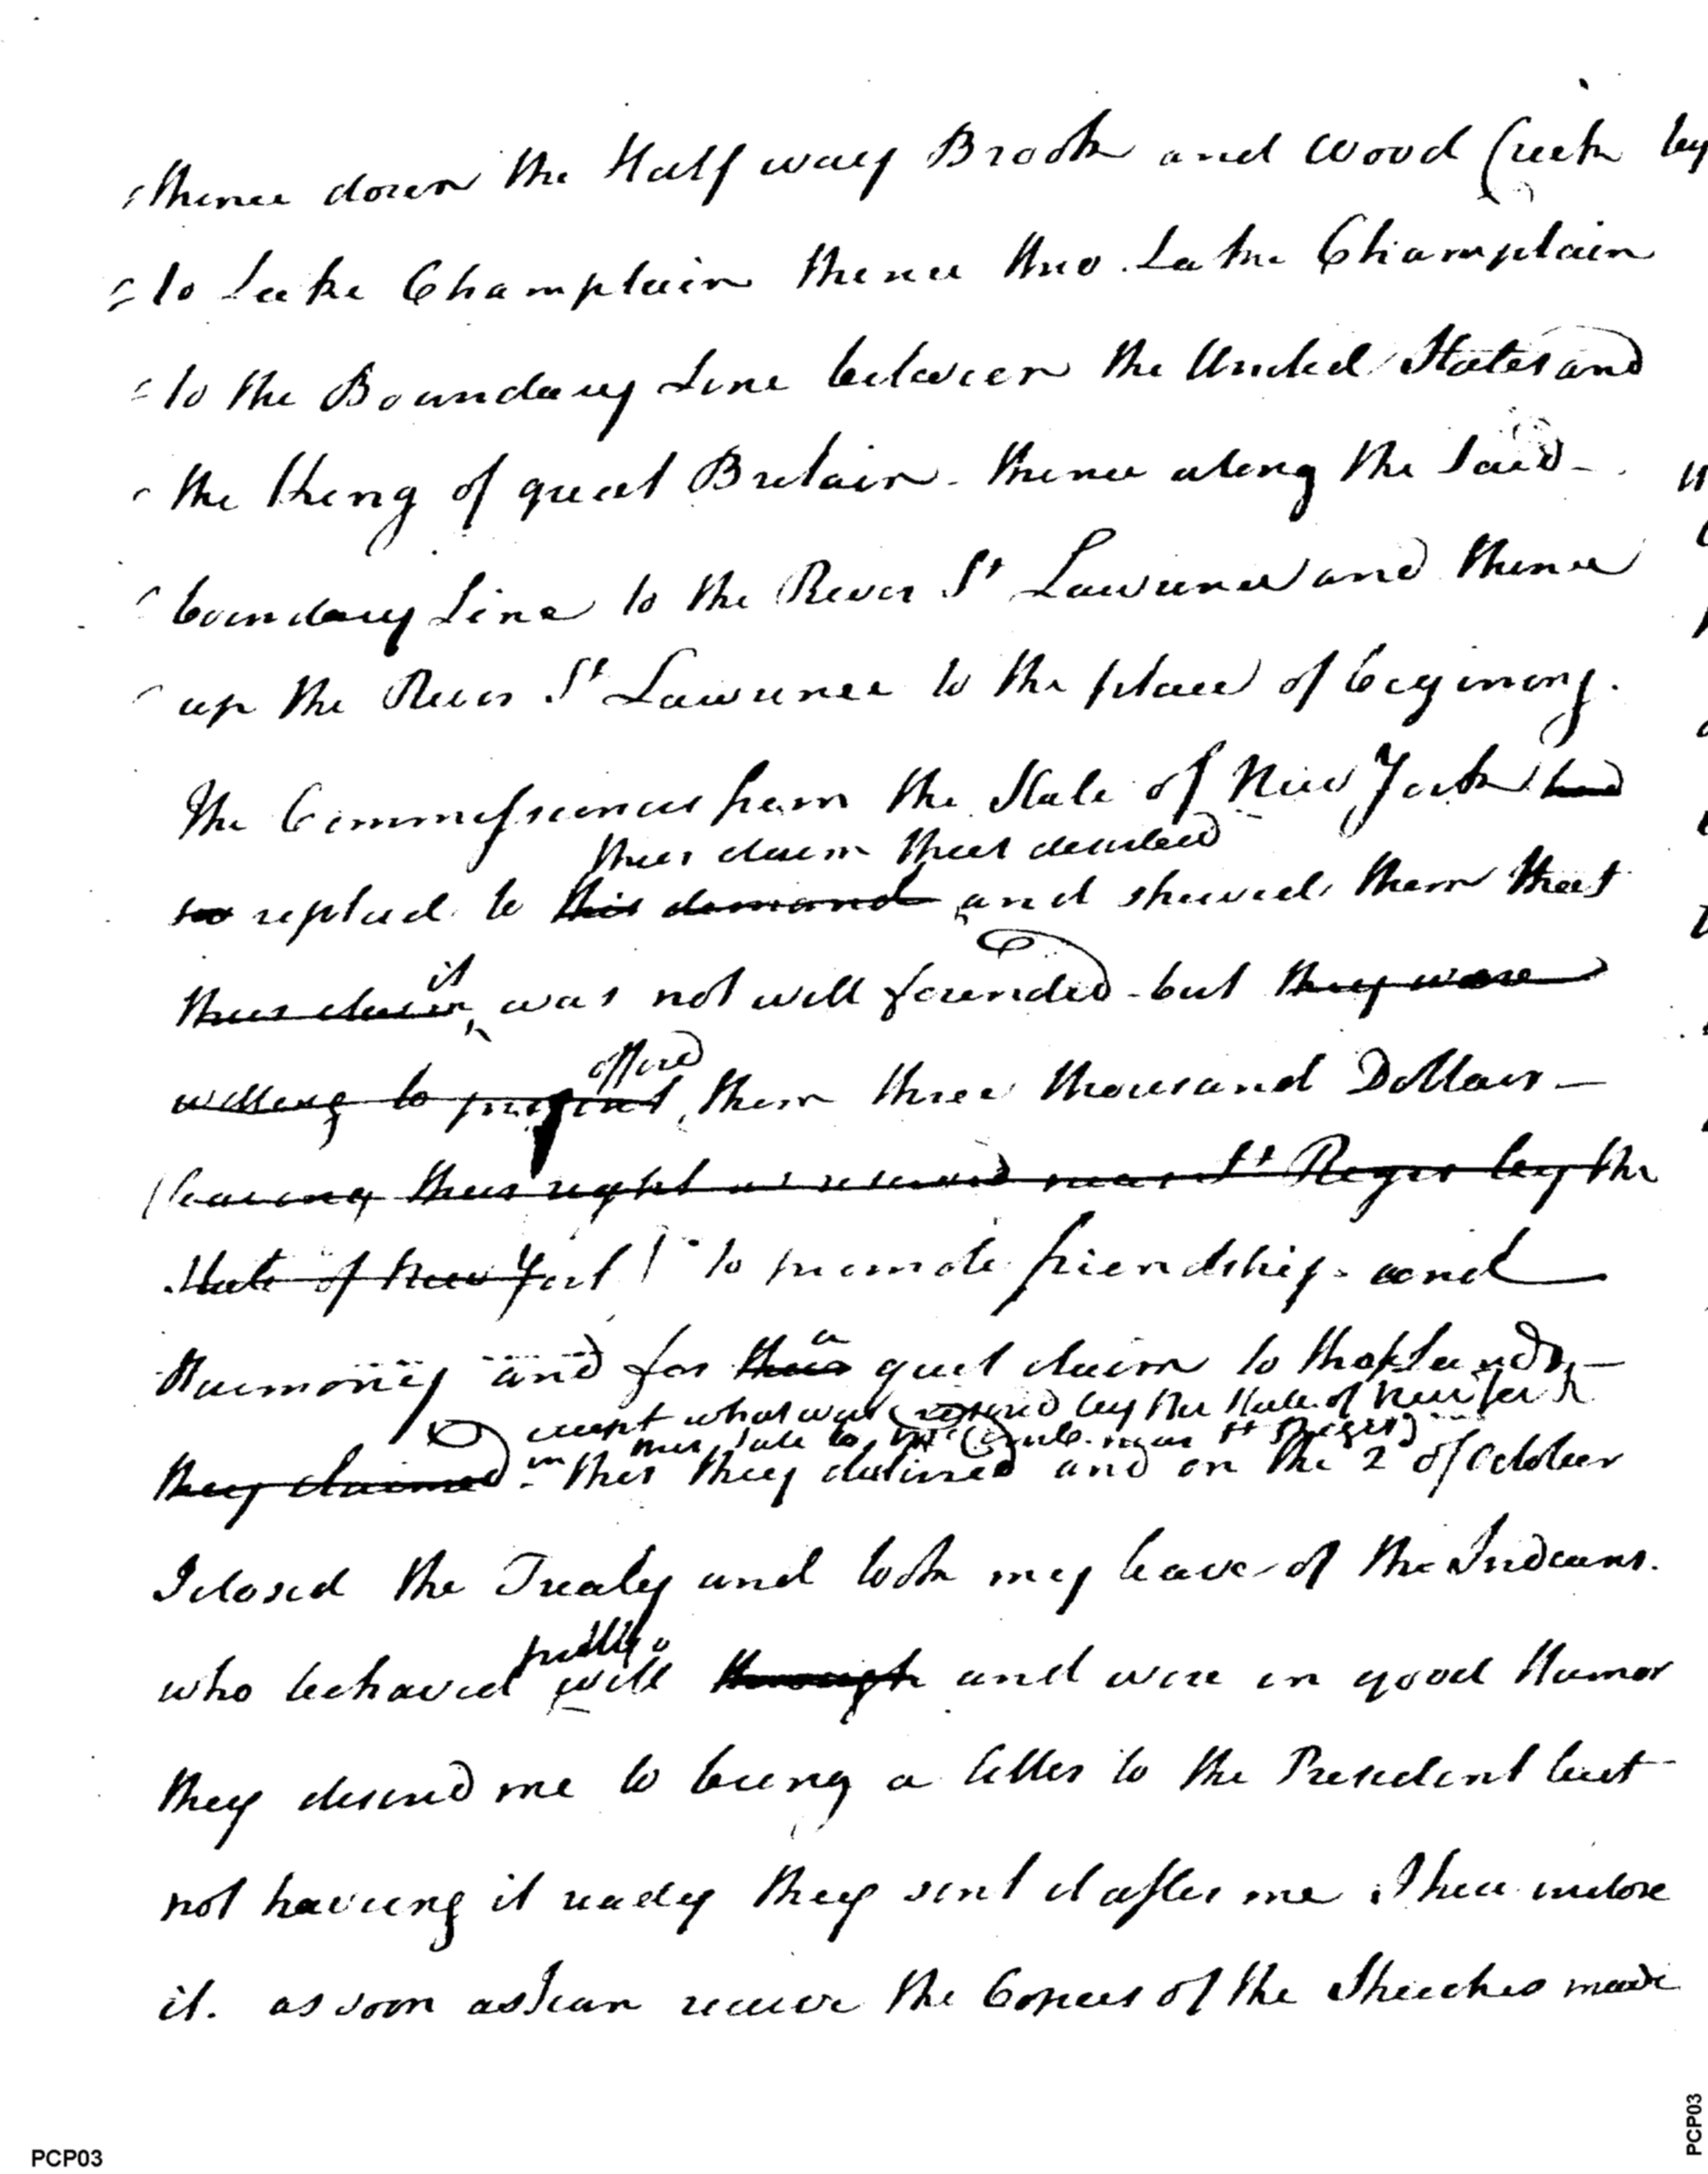 thence down the Half way Brook and Wood Creek
to Lake Champlain thence thro Lake Champlain
to the Boundary Line between the United States and
the King of great Britain - thence along the said -
boundary Line to the River St Lawrence and thence
up the River St Lawrence to the place of begining.
The Commissioners from the State of New York had
their claim their
so replied to this demand and shewed them that
it
their claim was not well founded - but they were
offered
willing to present them three thousand Dollars -
(leaving their right as reserved near St Regis by the
State of New York) to promote friendship - and
a
Harmony and for their quit claim to the Lands -
except what was reserved by the State of New York
in their Sale to McComb near St Regis)
they claimed - this they declined and on the 2 of October
I closed the Treaty and took my leave of the Indians.
pretty
who behaved well through and were in good Humor
they desired me to bring a letter to the President but
not having it ready they sent it after me I here inclose
it. as soon as I can receive the Copies of the Speeches made
PCP03
PCP03